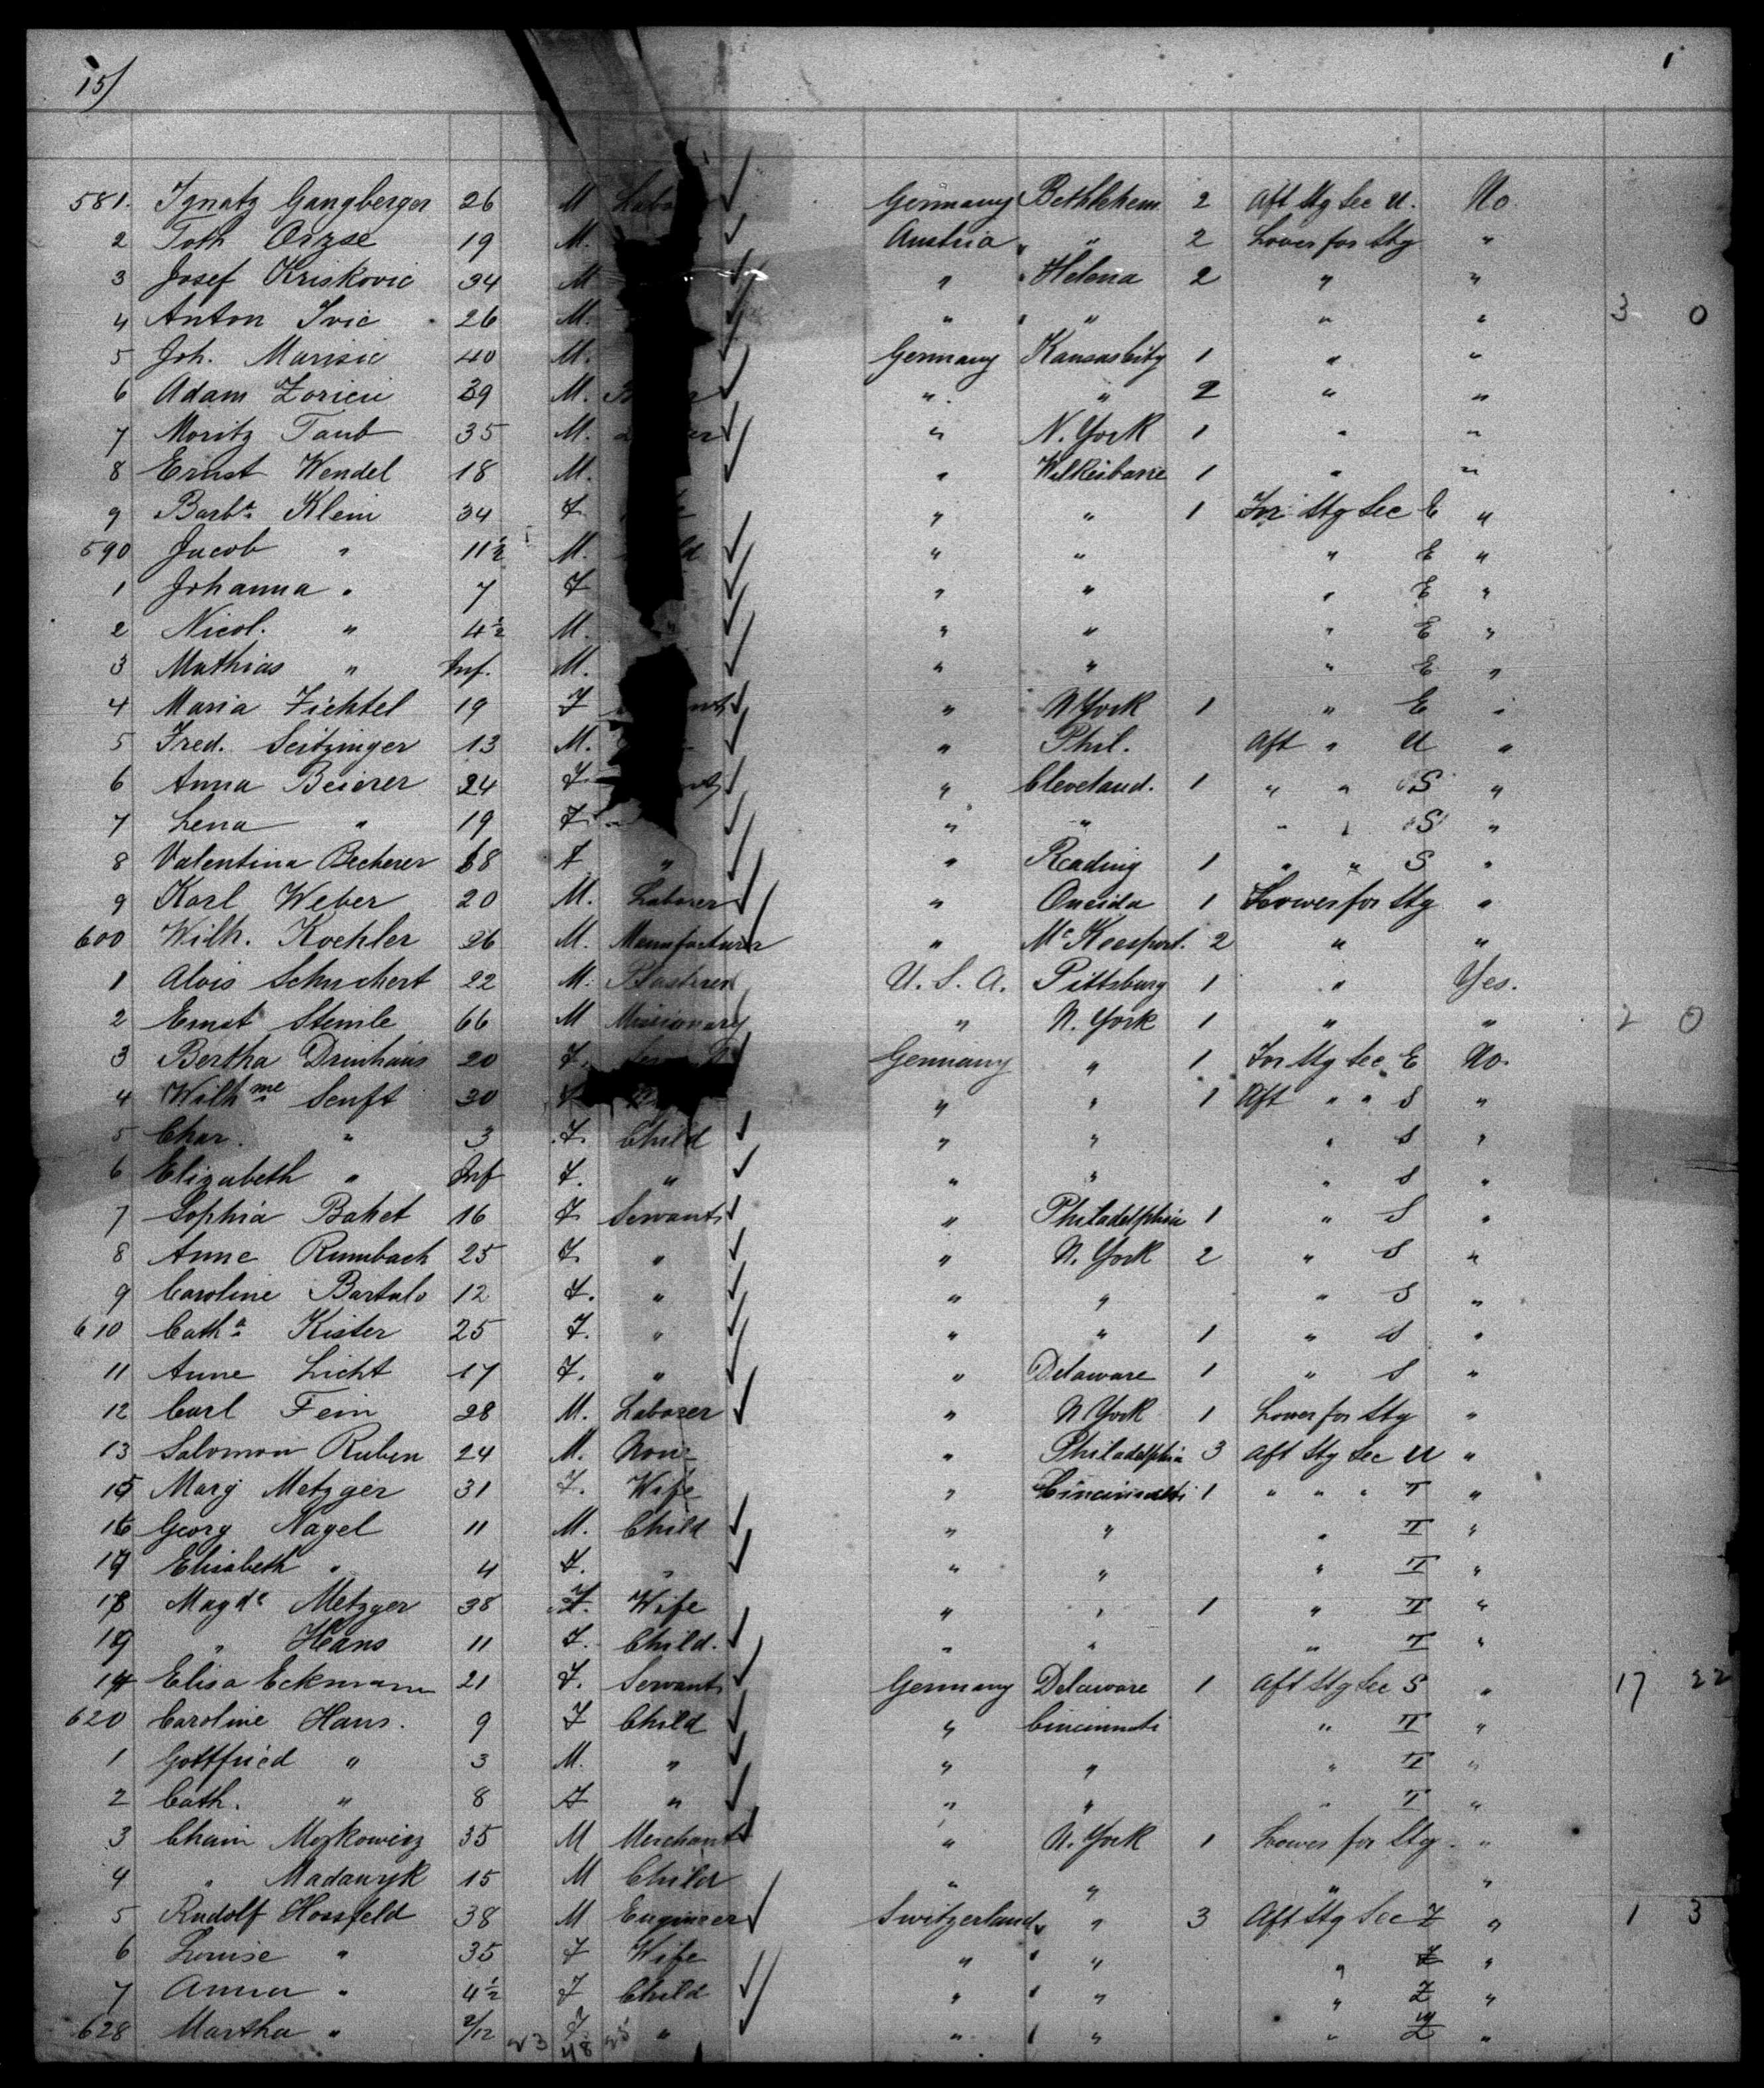 15/ 1
581. Ignatz Gangberger 26 M Germany Bethlehem 2 Aft Stg Sec U. No.
2 Toth Orzse 19 M. Austria " 2 Lower for Stg "
3 Josef Kriskovic 34 M " Helena 2 " "
4 Anton Ivic 26 M. " " " " 3 0
5 Joh. Marisic 40 M. Germany Kansas City 1 " "
6 Adam 39 M. " " 2 " "
7 Moritz Taub 35 M. " N. York 1 " "
8 Ernst Wendel 18 M. " Wilkesbarre 1 " "
9 Barba Klein 34 F " " 1 For Stg Sec E "
590 Jacob " 11½ M. " " " E "
1 Johanna " 7 F " " " E "
2 Nicol. " 4½ M. " " " E "
3 Mathias " Inf. M. " " " E "
4 Maria Fichtel 19 F " N York 1 " E "
5 Fred. Seitzinger 13 M. " Phil. Aft " U "
6 Anna Beierer 24 F " Cleveland. 1 " " S "
7 Lena " 19 F " " " " S "
8 Valentina Becherer 18 F " " Reading 1 " " S "
9 Karl Weber 20 M. Laborer " Oneida 1 Lower for Stg "
600 Wilh. Koehler 26 M. Manufacturer " McKeesport. 2 " "
1 Alois Schuchert 22 M. Plasterer U. S. A. Pittsburg 1 " Yes.
2 Ernst Steinle 66 M Missionary " N. York 1 " " 2 0
3 Bertha Drinhaus 20 F. Germany " 1 For Stg Sec E No.
4 Wilhme Senft 30 F " " 1 Aft " " S "
5 Char. " 3 F. Child " " " S "
6 Elizabeth " Inf F. " " " " S "
7 Sophia Baket 16 F Servant " Philadelphia 1 " S "
8 Anne Rumbach 25 F. " " N. York 2 " S "
9 Caroline Bartulo 12 F. " " " " S "
610 Catha Kister 25 F. " " " 1 " S "
11 Anne Licht 17 F. " " Delaware 1 " S "
12 Carl Fein 28 M. Laborer " N York 1 Lower for Stg "
13 Salomon Rubin 24 M. None " Philadelphia 3 Aft Stg Sec U "
15 Mary Metzger 31 F. Wife " Cincinnati 1 " " " T "
16 Georg Nagel 11 M. Child " " " T "
17 Elisabeth " 4 F. " " " " T "
18 Magda Metzger 38 F. Wife " " 1 " T "
19 " Hans 11 F. Child. " " " T "
14 Elisa Eckmann 21 F. Servant Germany Delaware 1 Aft Stg Sec S " 17 22
620 Caroline Hans. 9 F Child " Cincinnati " T "
1 Gottfried " 3 M. " " " " T "
2 Cath. " 8 F " " " " T "
3 Chain Moskowicz 35 M Merchant " N. York 1 Lower for Stg. "
4 " Madauyk 15 M Child " " " "
5 Rudolf Hossfeld 38 M Engineer Switzerland " 3 Aft Stg Sec Z " 1 3
6 Louise " 35 F Wife " " " Z "
7 Anna " 4½ F Child " " " Z "
628 Martha " 2/12 F. " " " " Z "
23 48 25